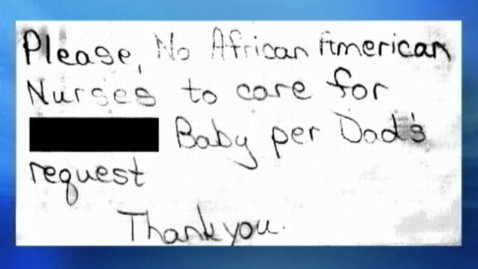 Please, No African American
Nurses to care for
Baby per Dad's
request
Thankyou.